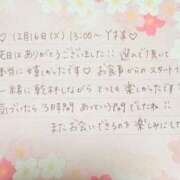 ♡12月16日(火)13:00〜Yさま♡
先日はありがとうございました!! 選んで頂いて
本当に嬉しかったです♡お食事からのスタートで
一緒に乾杯しながらとっても楽しかったです
気づいたら3時間あっという間でしたね!!
またお会いできるのを楽しみにした